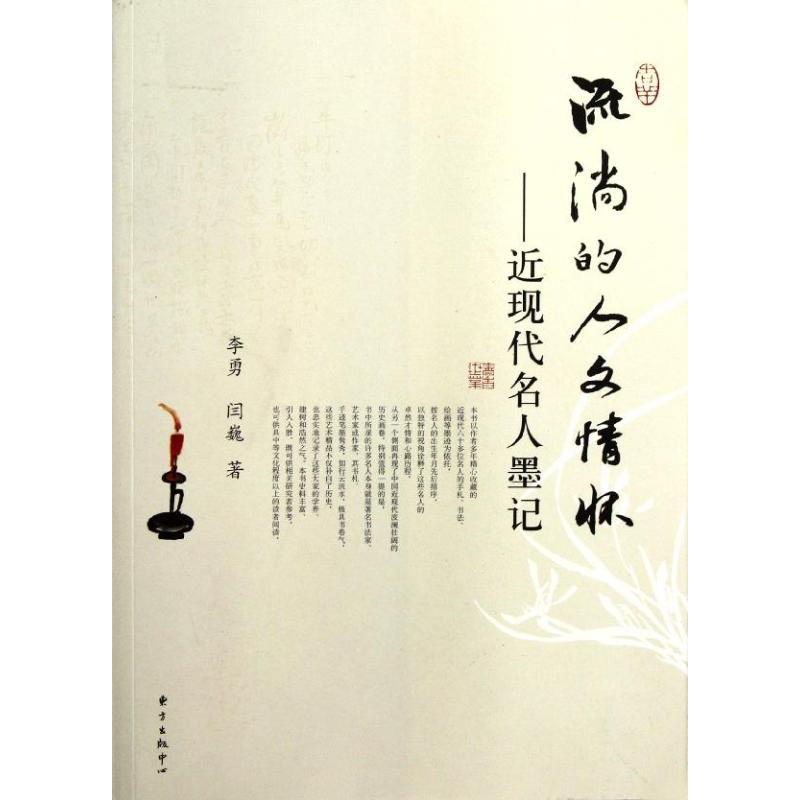 流淌的人文情怀
——近现代名人墨记
本书以作者多年精心收藏的
近现代六十多位名人的手札、书法、
绘画等墨迹为依托，
按名人的出生年月先后排序，
以独特的视角诠释了这些名人的
卓然才情和心路历程，
从另一个侧面再现了中国近现代波澜壮阔的
历史画卷。特别值得一提的是，
书中所录的许多名人本身就是著名书法家、
艺术家或作家，其书札
手迹笔墨隽秀，如行云流水，极具书卷气。
这些艺术精品不仅补白了历史，
也忠实地记录了这些大家的学养、
建树和浩然之气。本书史料丰富，
引人入胜，既可供相关研究者参考，
也可供具中等文化程度以上的读者阅读。
李勇 闫巍 著
东方出版中心